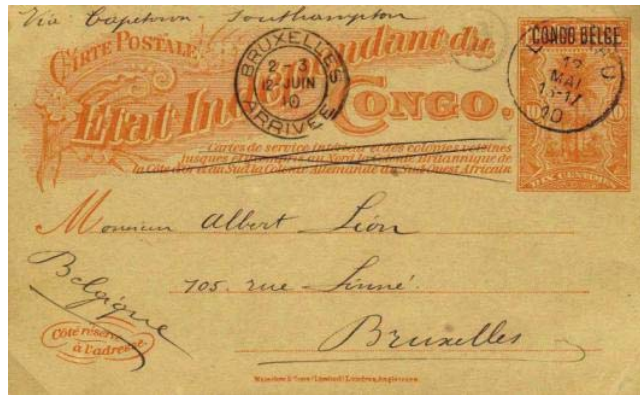 Via Capetown - Southampton
CARTE POSTALE
CONGO BELGE
Etat Indépendant du
CONGO.
BRUXELLES
2-3
12 JUIN
10
ARRIVEE
MAI
10
10
10
Cartes de service intérieur et des colonies voisines
Jusques et compris au Nord la Colonie Britannique de
la Côte d'Or et du Sud la Colonie Allemande du Sud Ouest Africain
DIX CENTIMES
Monsieur Albert Léon
105. rue - Linné.
Belgique
Bruxelles
Côté réservé
à l'adresse
Waterlow & Sons Limited, Londres, Angleterre